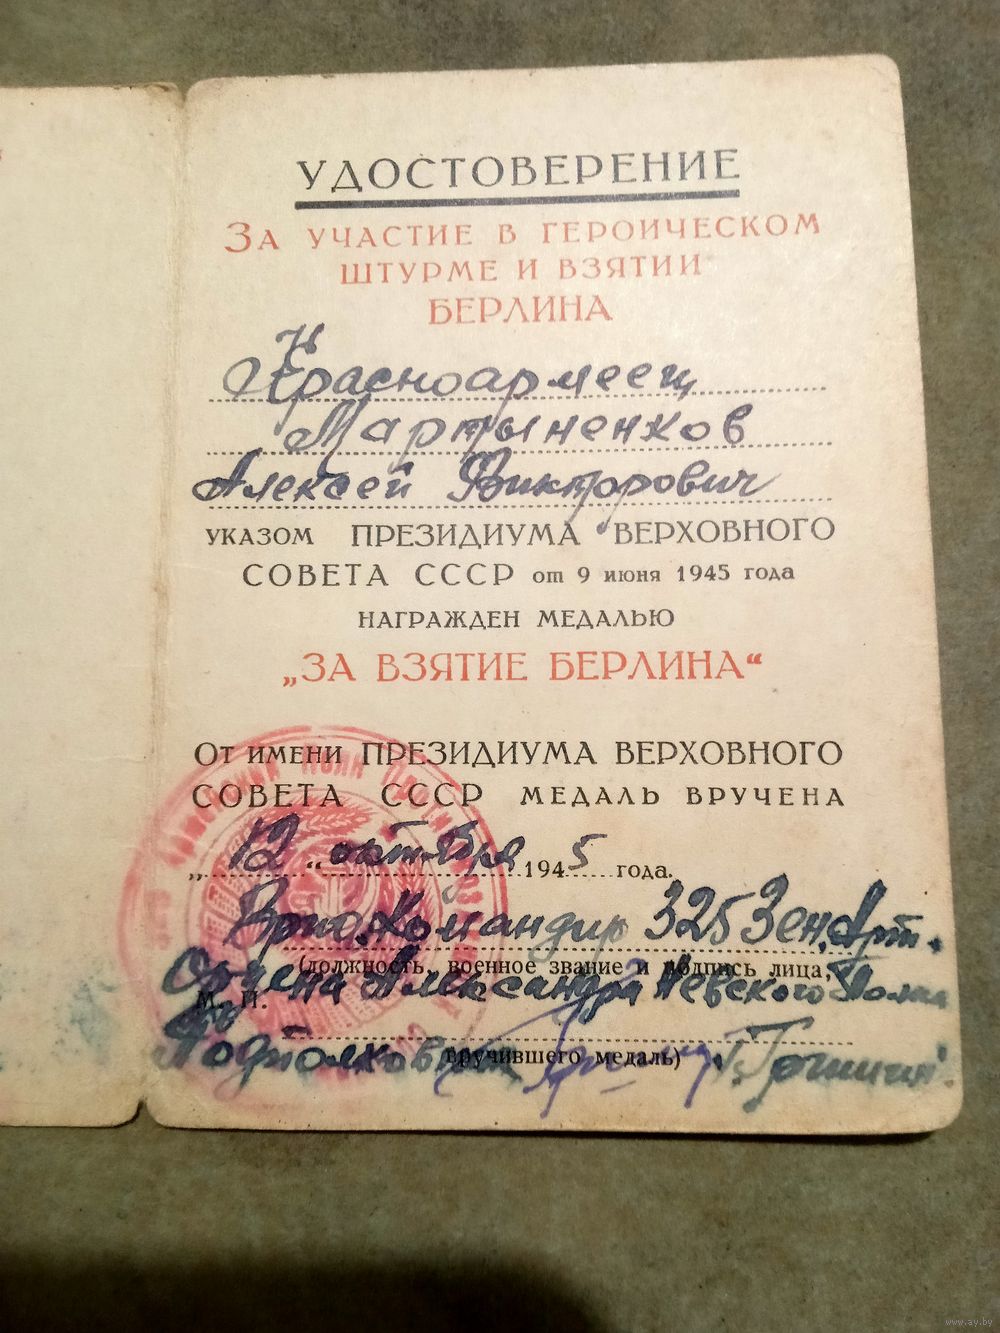 УДОСТОВЕРЕНИЕ
ЗА УЧАСТИЕ В ГЕРОИЧЕСКОМ
ШТУРМЕ И ВЗЯТИИ
БЕРЛИНА
Красноармеец
Мартыненков
Алексей Викторович
УКАЗОМ ПРЕЗИДИУМА ВЕРХОВНОГО
СОВЕТА СССР от 9 июня 1945 года
НАГРАЖДЕН МЕДАЛЬЮ
„ЗА ВЗЯТИЕ БЕРЛИНА“
ОТ ИМЕНИ ПРЕЗИДИУМА ВЕРХОВНОГО
СОВЕТА СССР МЕДАЛЬ ВРУЧЕНА
„12“ октября 1945 года.
Врио. Командир 325 Зен. Арт.
(должность, военное звание и подпись лица,
Ордена Александра Невского Полка
М. П.
Подполковник
вручившего медаль)
www.ay.by